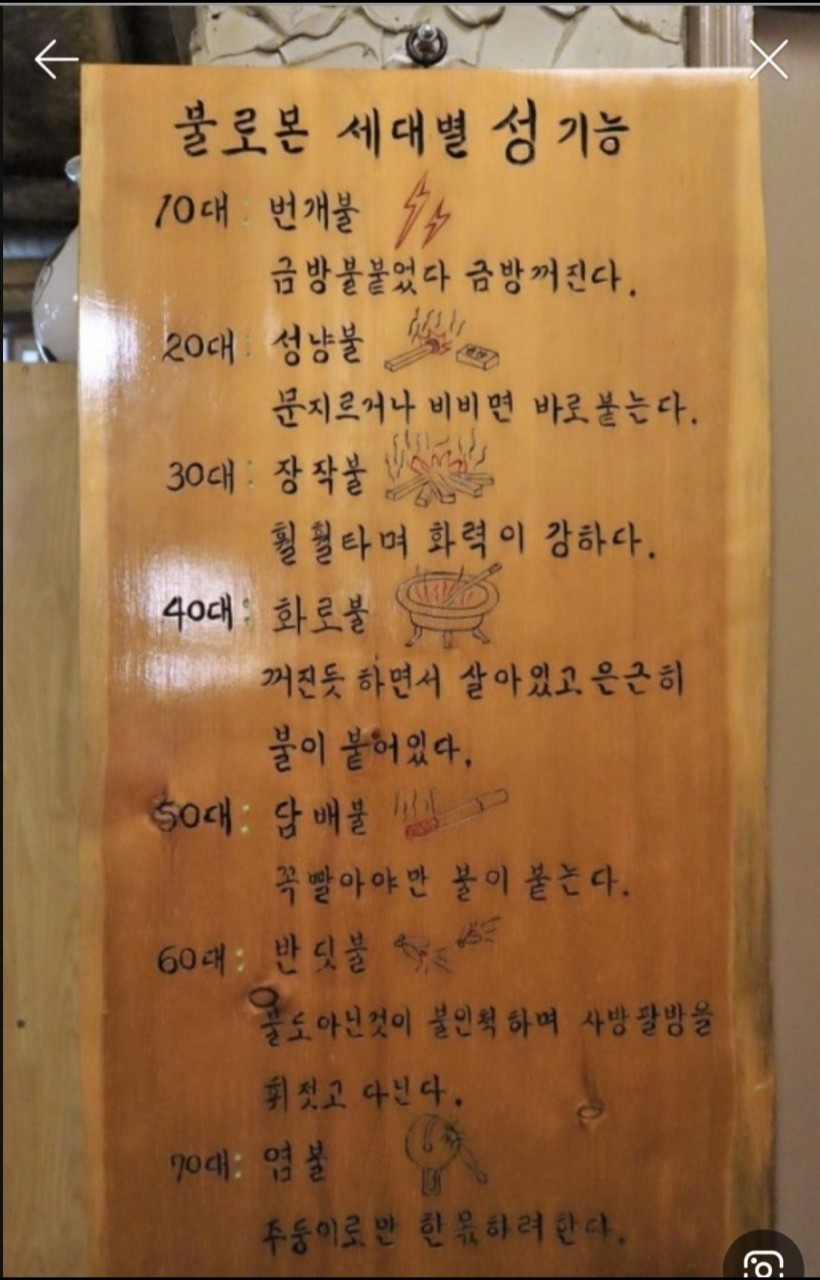 불로본 세대별 성 기능
10대 : 번개불
금방불붙었다 금방꺼진다.
20대 : 성냥불
문지르거나 비비면 바로붙는다.
30대 : 장작불
훨훨타며 화력이 강하다.
40대 : 화로불
꺼진듯 하면서 살아있고 은근히
불이 붙어있다.
50대 : 담배불
꼭빨아야만 불이 붙는다.
60대 : 반딧불
불도아닌것이 불인척하며 사방팔방을
휘젓고 다닌다.
70대 : 염불
주둥이로만 한몫하려한다.